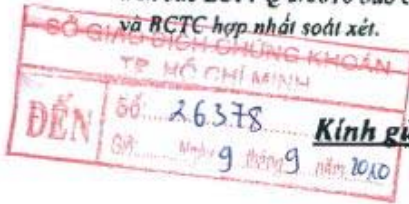 và BCTC hợp nhất soát xét.
SỞ GIAO DỊCH CHỨNG KHOÁN
TP. HỒ CHÍ MINH
ĐẾN
Số: 26378
Giờ: Ngày 9 tháng 9 năm 2010
Kính gử